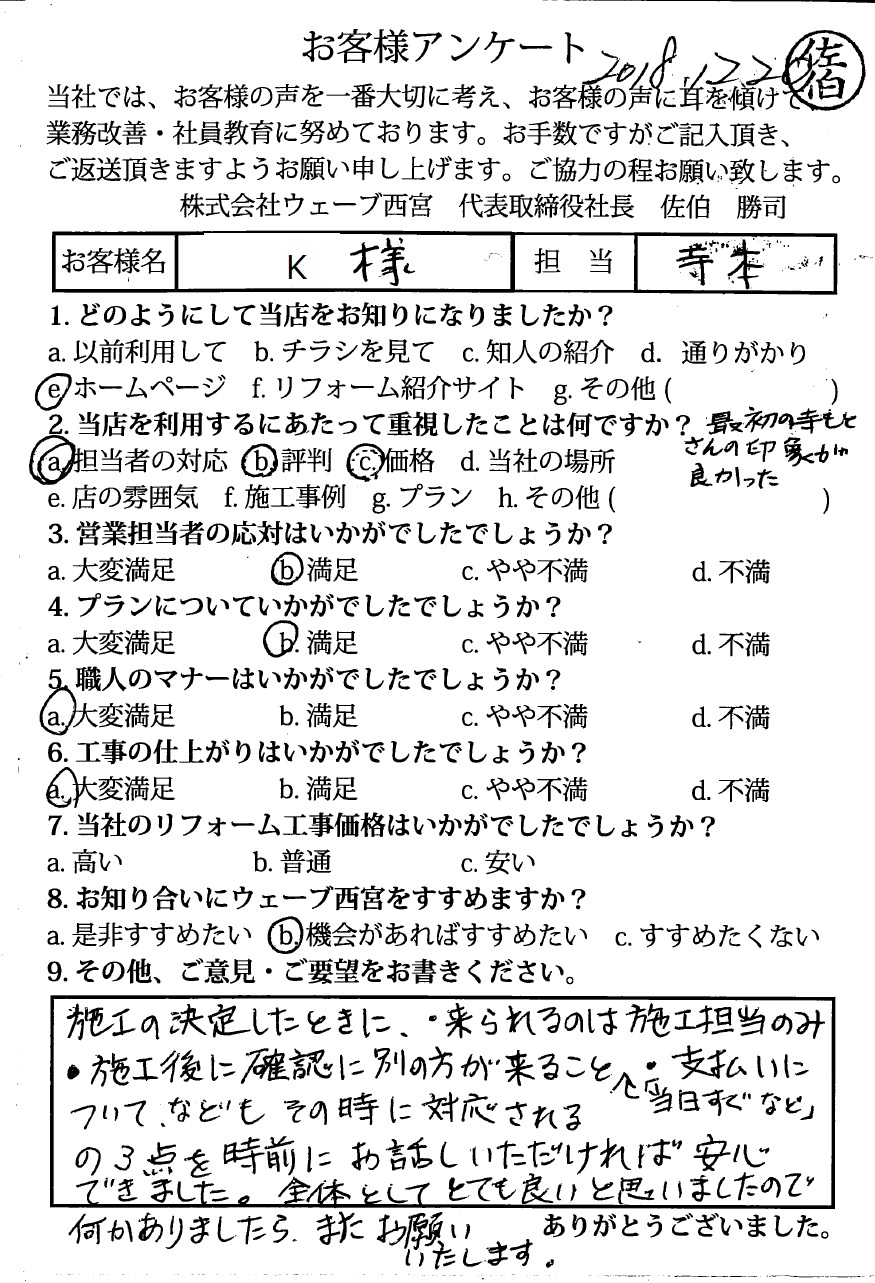 お客様アンケート 2018.12.2 佐伯
当社では、お客様の声を一番大切に考え、お客様の声に耳を傾けて
業務改善・社員教育に努めております。お手数ですがご記入頂き、
ご返送頂きますようお願い申し上げます。ご協力の程お願い致します。
株式会社ウェーブ西宮 代表取締役社長 佐伯 勝司
お客様名 K 様 担当 寺本
1. どのようにして当店をお知りになりましたか？
a. 以前利用して b. チラシを見て c. 知人の紹介 d. 通りがかり
e. ホームページ f. リフォーム紹介サイト g. その他 ( )
2. 当店を利用するにあたって重視したことは何ですか？ 最初の寺もと
a. 担当者の対応 b. 評判 c. 価格 d. 当社の場所 さんの印象が
良かった
e. 店の雰囲気 f. 施工事例 g. プラン h. その他 ( )
3. 営業担当者の応対はいかがでしたでしょうか？
a. 大変満足 b. 満足 c. やや不満 d. 不満
4. プランについていかがでしたでしょうか？
a. 大変満足 b. 満足 c. やや不満 d. 不満
5. 職人のマナーはいかがでしたでしょうか？
a. 大変満足 b. 満足 c. やや不満 d. 不満
6. 工事の仕上がりはいかがでしたでしょうか？
a. 大変満足 b. 満足 c. やや不満 d. 不満
7. 当社のリフォーム工事価格はいかがでしたでしょうか？
a. 高い b. 普通 c. 安い
8. お知り合いにウェーブ西宮をすすめますか？
a. 是非すすめたい b. 機会があればすすめたい c. すすめたくない
9. その他、ご意見・ご要望をお書きください。
施工の決定したときに、・来られるのは施工担当のみ
・施工後に確認に別の方が来ること ・支払いに
ついて、なども その時に対応される 「当日すぐなど」
の3点を時前にお話しいただければ安心
できました。全体としてとても良いと思いましたので
何かありましたら、またお願い ありがとうございました。
いたします。